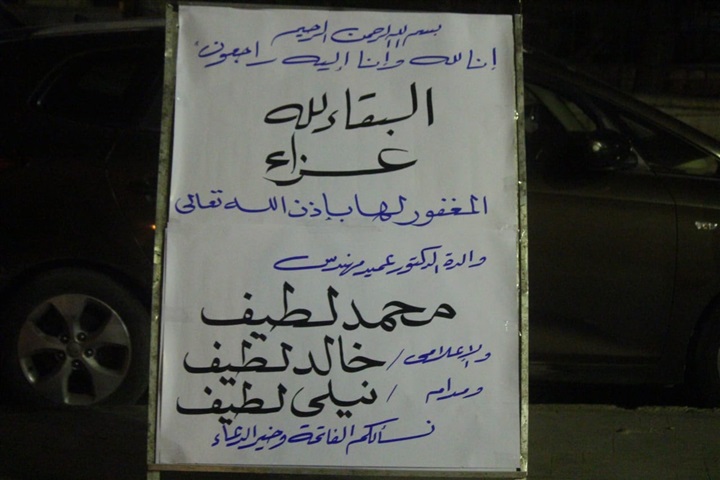 بسم الله الرحمن الرحيم
إنا لله وإنا إليه راجعون
البقاء لله
عزاء
المغفور لها بإذن الله تعالى
والدة الدكتور عميد مهندس
محمد لطيف
والإعلامى / خالد لطيف
ومدام / نيلى لطيف
نسألكم الفاتحة وخير الدعاء